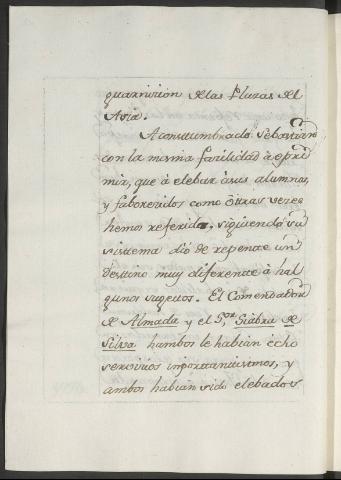 guarnicion de las Plazas del
Asia.
Aconstumbrado Sebastian
con la misma facilidad à opri
mir, que à elebar à sus alumnos,
y faborecidos como ôtras veces
hemos referido, siguiendo su
sistema dió de repente un
destino muy diferente à hal
gunos sugetos. El Comendador
de Almada y el S.or Giabra de
Silva hambos le habian echo
servicios inportantisimos, y
ambos habian sido elebados